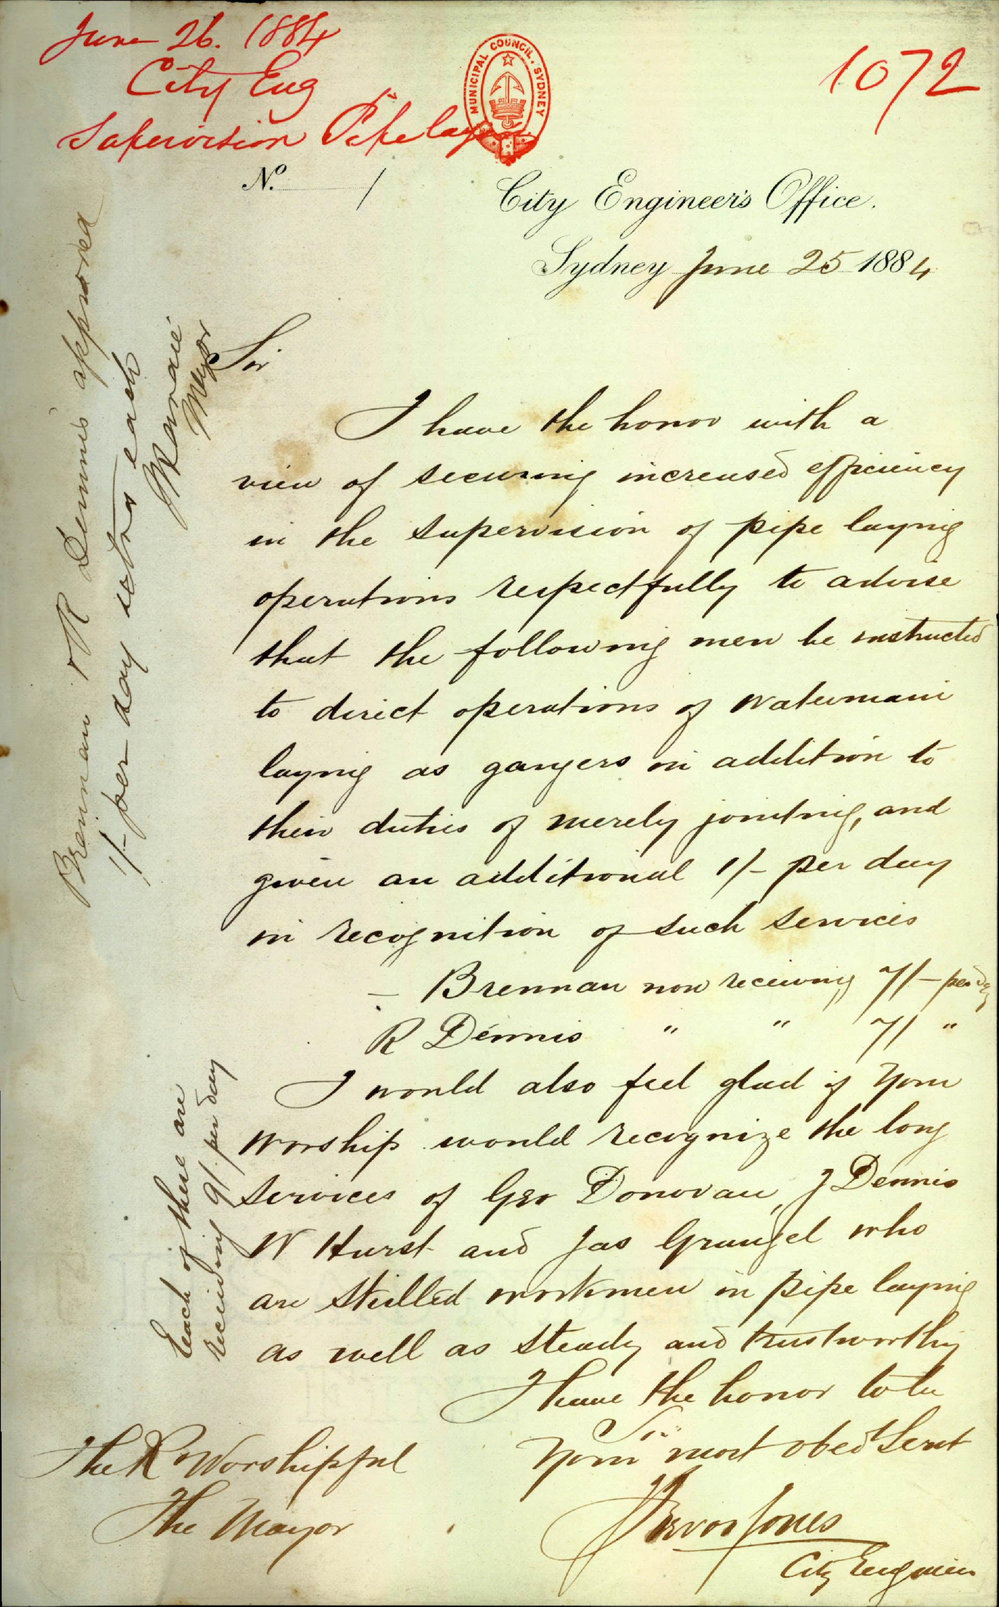 June 26. 1884
City Eng
Supervision Pipe laying
1072
MUNICIPAL COUNCIL, SYDNEY
No. /
City Engineer's Office.
Sydney June 25 1884
Sir
I have the honor with a
view of securing increased efficiency
in the supervision of pipe laying
operations respectfully to advise
that the following men be instructed
to direct operations of Watermain
laying as gangers in addition to
their duties of merely jointing, and
given an additional 1/- per day
in recognition of such services
— Brennan now receiving 7/- per day
R Dennis " " 7/ "
I would also feel glad if Your
Worship would recognize the long
services of Geo Donovan, J Dennis
W Hurst and Jas Grungel who
are skilled workmen in pipe laying
as well as steady and trustworthy
I have the honor to be
Sir
Your most obed Servt
Trevor Jones
City Engineer
The Rt Worshipful
The Mayor
Brennan & R Dennis approved
1/- per day extra each
Mayor
Each of these are
receiving 9/ per day